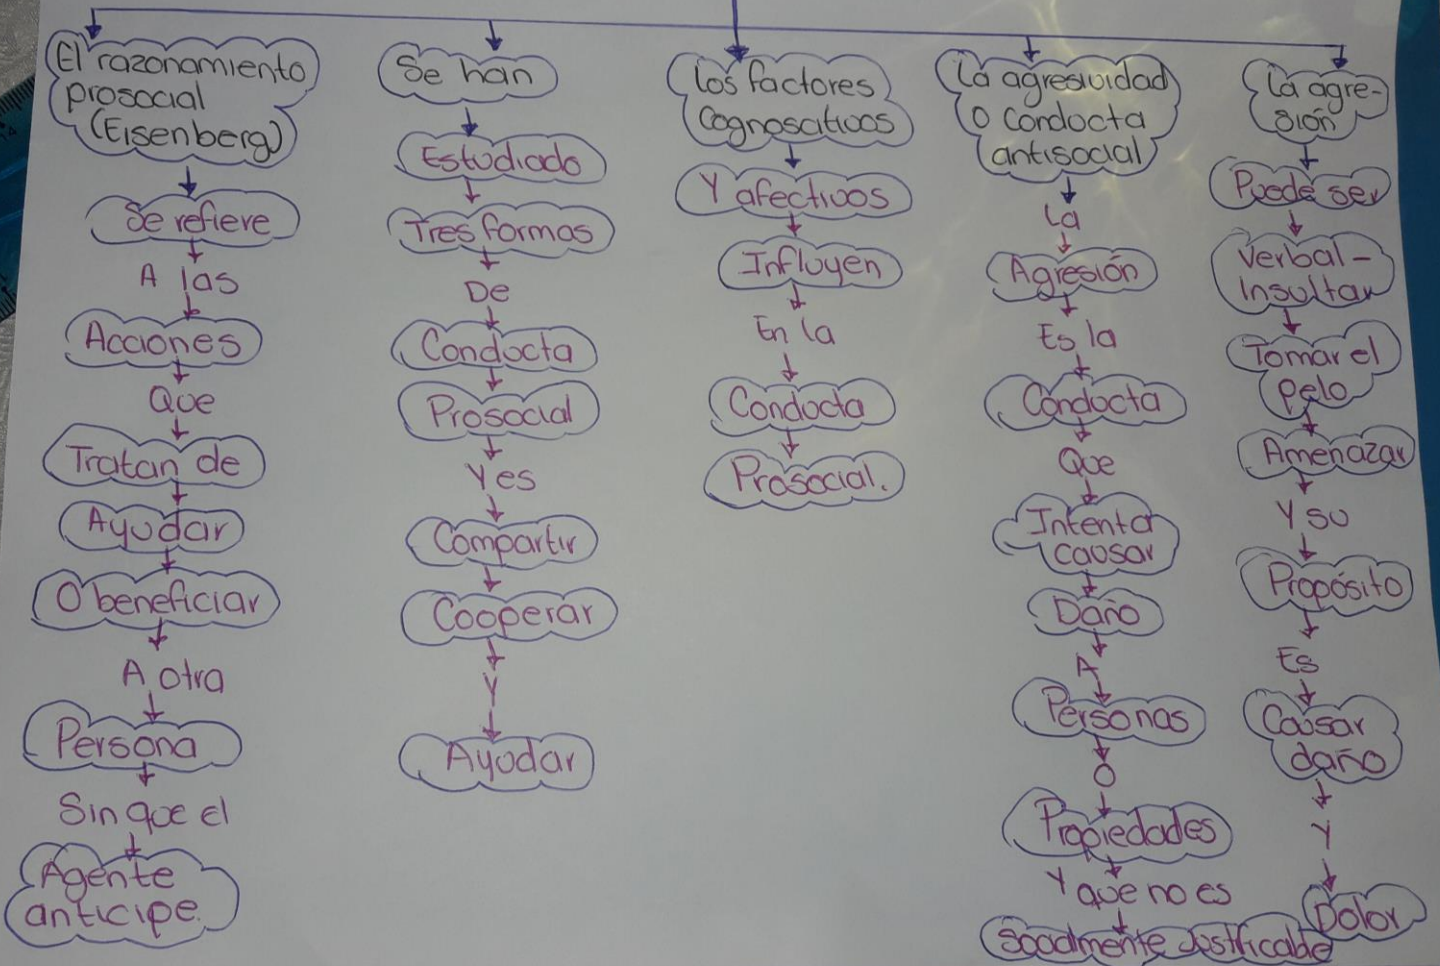 El razonamiento
prosocial
(Eisenberg)
Se refiere
A las
Acciones
Que
Tratan de
Ayudar
O beneficiar
A otra
Persona
Sin que el
Agente
anticipe.
Se han
Estudiado
Tres formas
De
Conducta
Prosocial
Y es
Compartir
Cooperar
Y
Ayudar
Los factores
Cognoscitivos
Y afectivos
Influyen
En la
Conducta
Prosocial.
La agresividad
O Conducta
antisocial
La
Agresión
Es la
Conducta
Que
Intenta
causar
Daño
A
Personas
O
Propiedades
Y que no es
Socialmente Justificable
La agre-
sión
Puede ser
Verbal-
Insultar
Tomar el
pelo
Amenazar
Y su
Propósito
Es
Causar
daño
Y
Dolor